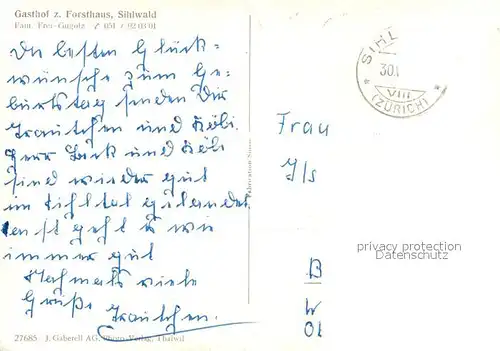 Gasthof z. Forsthaus, Sihlwald
Fam. Frei-Gugolz ✆ 051 / 92 03 01
Die besten Glück-
wünsche zum Ge-
burtstag senden Dir
Trautchen und Köbi.
Herr und Köbi
sind wieder gut
im Sihltal gelandet,
geht es wie
immer gut
Nochmals viele
Grüße Trautchen.
27685 J. Gaberell AG, Photo-Verlag, Thalwil
SIHL
30.
VIII
(ZÜRICH)
Frau
privacy protection
Datenschutz